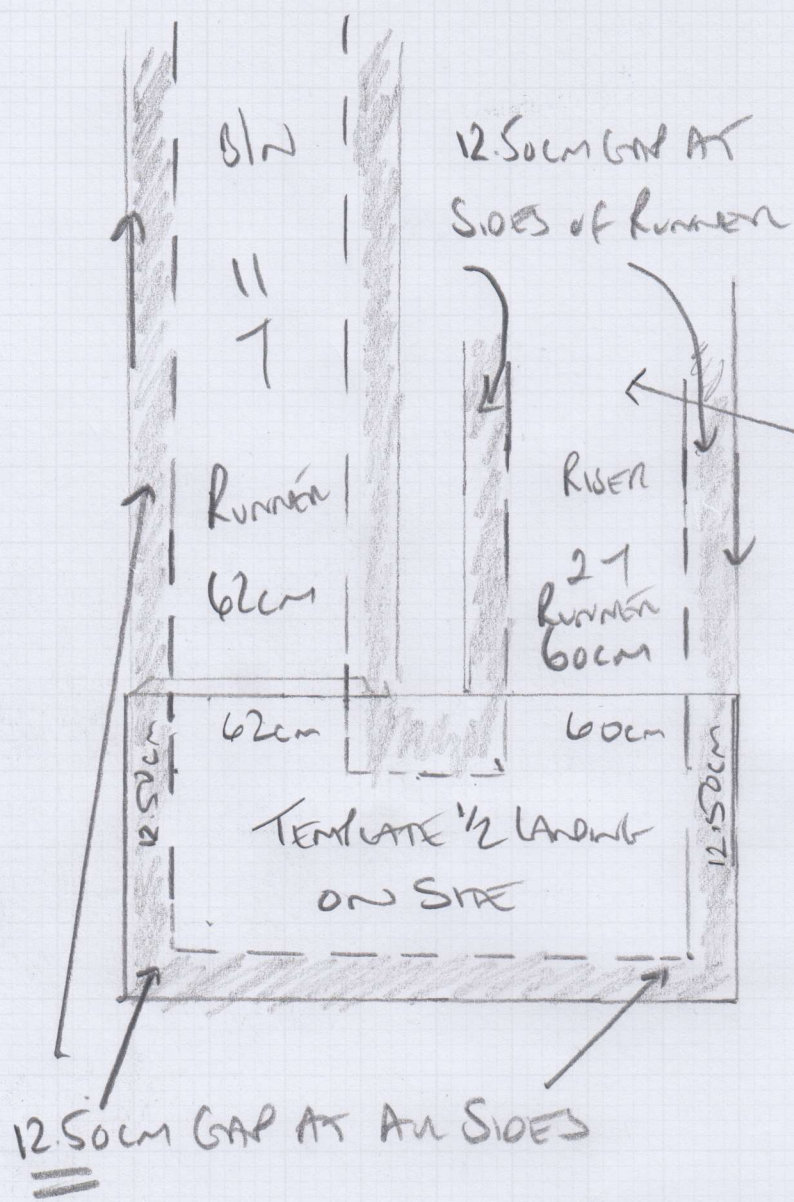 B/N
11
1
RUNNER
62CM
12.50CM GAP AT
SIDES OF RUNNER
RISER
21
RUNNER
60CM
62cm
60cm
12.50CM
12.50CM
TEMPLATE 1/2 LANDING
ON SITE
12.50CM GAP AT ALL SIDES